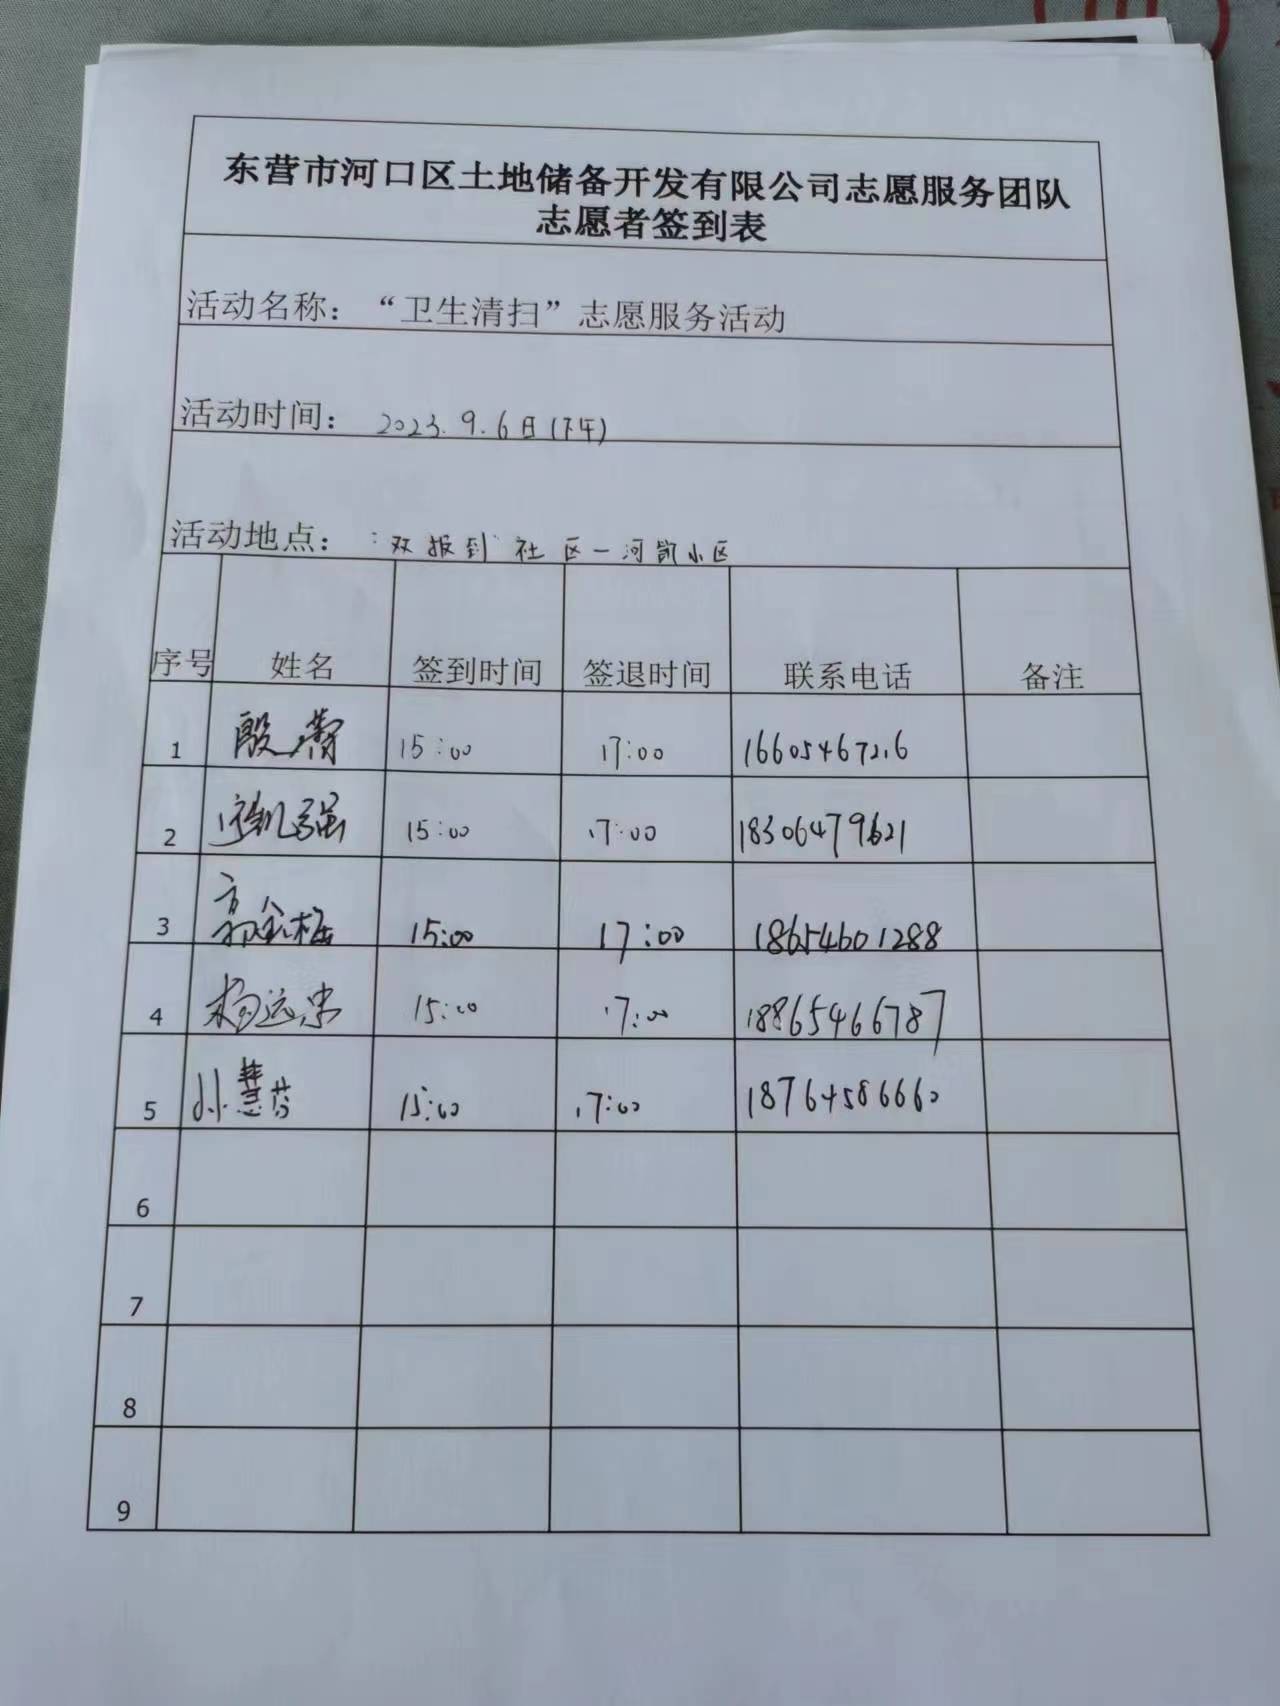 东营市河口区土地储备开发有限公司志愿服务团队
志愿者签到表
活动名称：“卫生清扫”志愿服务活动
活动时间： 2023.9.6日(下午)
活动地点： “双报到”社区—河凯小区
序号 姓名 签到时间 签退时间 联系电话 备注
1 殷 15:00 17:00 16605467216
2 凯强 15:00 17:00 18306479621
3 郭金梅 15:00 17:00 18654601288
4 杨远忠 15:00 17:00 18865466787
5 孙慧芬 15:00 17:00 18764586660
6
7
8
9